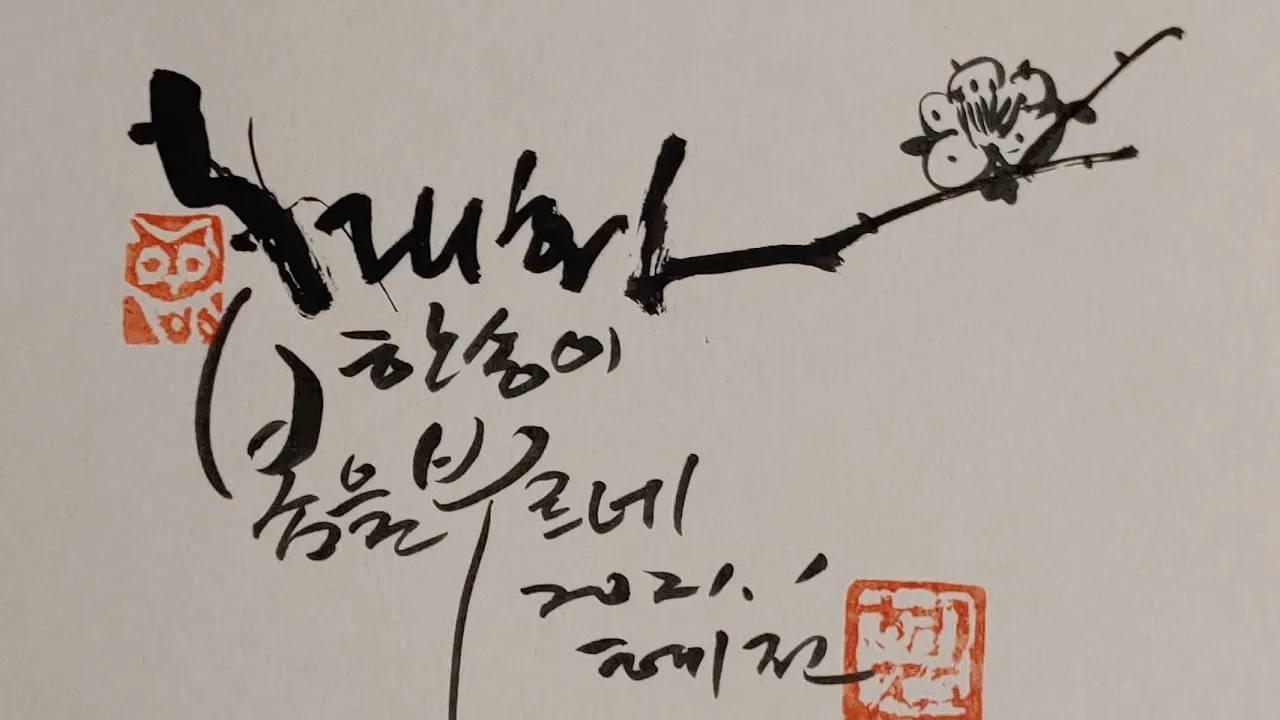 매화
한송이
봄을 부르네
2021.
혜전